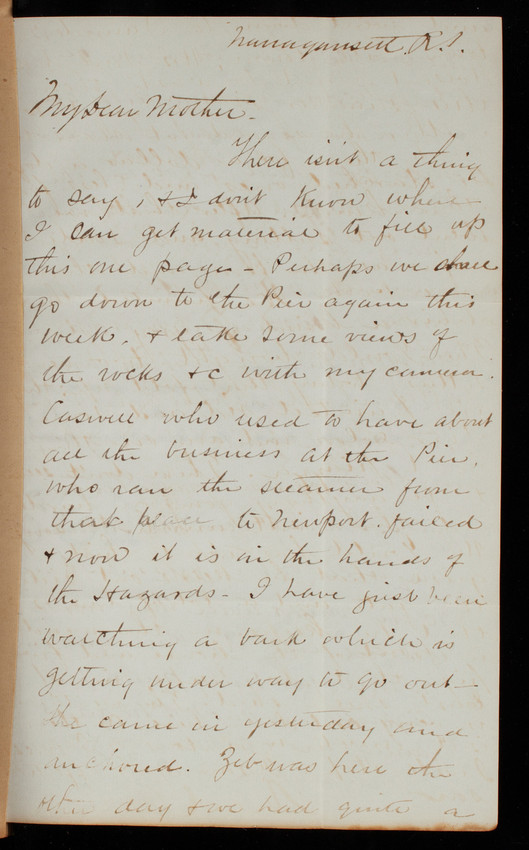 Narragansett. R.I.
My Dear Mother.
There isn't a thing
to say, & I don't know where
I can get material to fill up
this one page - Perhaps we shall
go down to the Pier again this
week, & take some views of
the rocks &c with my camera.
Caswell who used to have about
all the business at the Pier,
who ran the steamer from
that place to Newport. failed
& now it is in the hands of
the Hazards - I have just been
watching a bark which is
getting under way to go out -
She came in yesterday and
anchored. Zeb was here the
other day & we had quite a